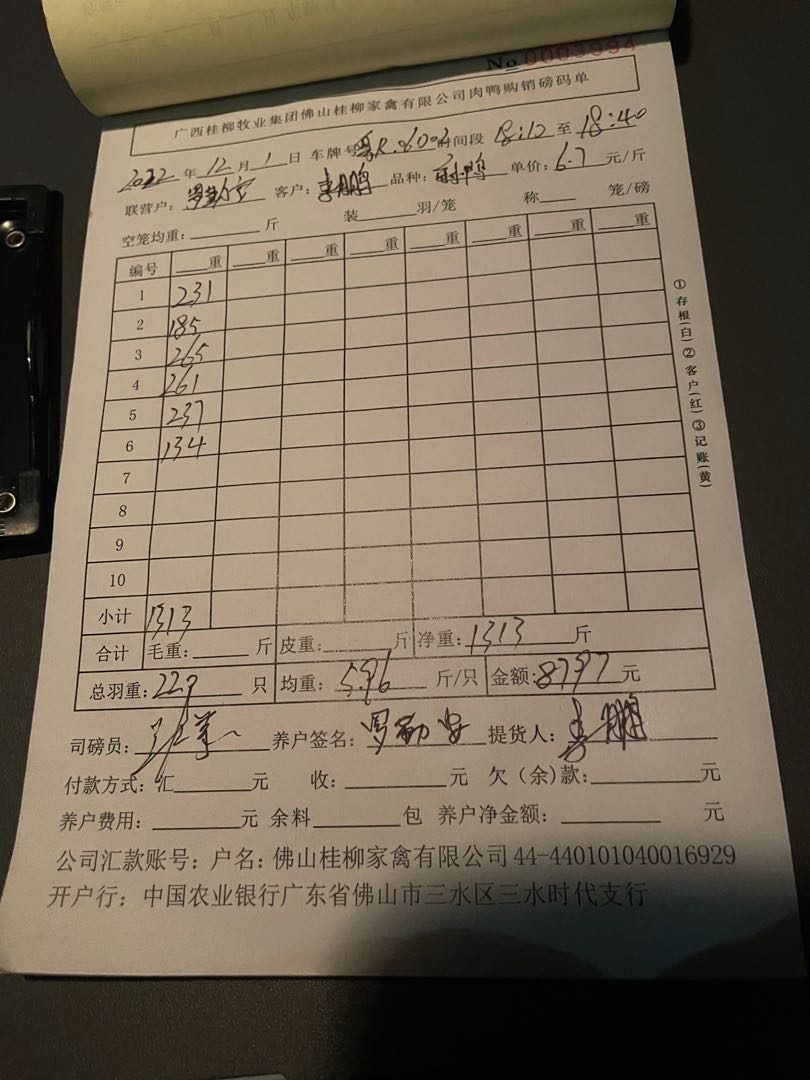 No 0003994
广西桂柳牧业集团佛山桂柳家禽有限公司肉鸭购销磅码单
2022年12月1日 车牌号 时间段 18:12 至 18:40
联营户: 客户: 李鹏 品种: 单价: 6.7 元/斤
空笼均重: 斤 装 羽/笼 称 笼/磅
编号 重 重 重 重 重 重 重 重
1 231
2 185
3 265
4 261
5 237
6 134
7
8
9
10
小计 1313
合计 毛重: 斤 皮重: 斤 净重: 1313 斤
总羽重: 229 只 均重: 5.96 斤/只 金额: 8797 元
司磅员: 养户签名: 提货人: 李鹏
付款方式: 汇 元 收: 元 欠(余)款: 元
养户费用: 元 余料 包 养户净金额: 元
公司汇款账号: 户名: 佛山桂柳家禽有限公司 44-440101040016929
开户行: 中国农业银行广东省佛山市三水区三水时代支行
①存根(白)②客户(红)③记账(黄)